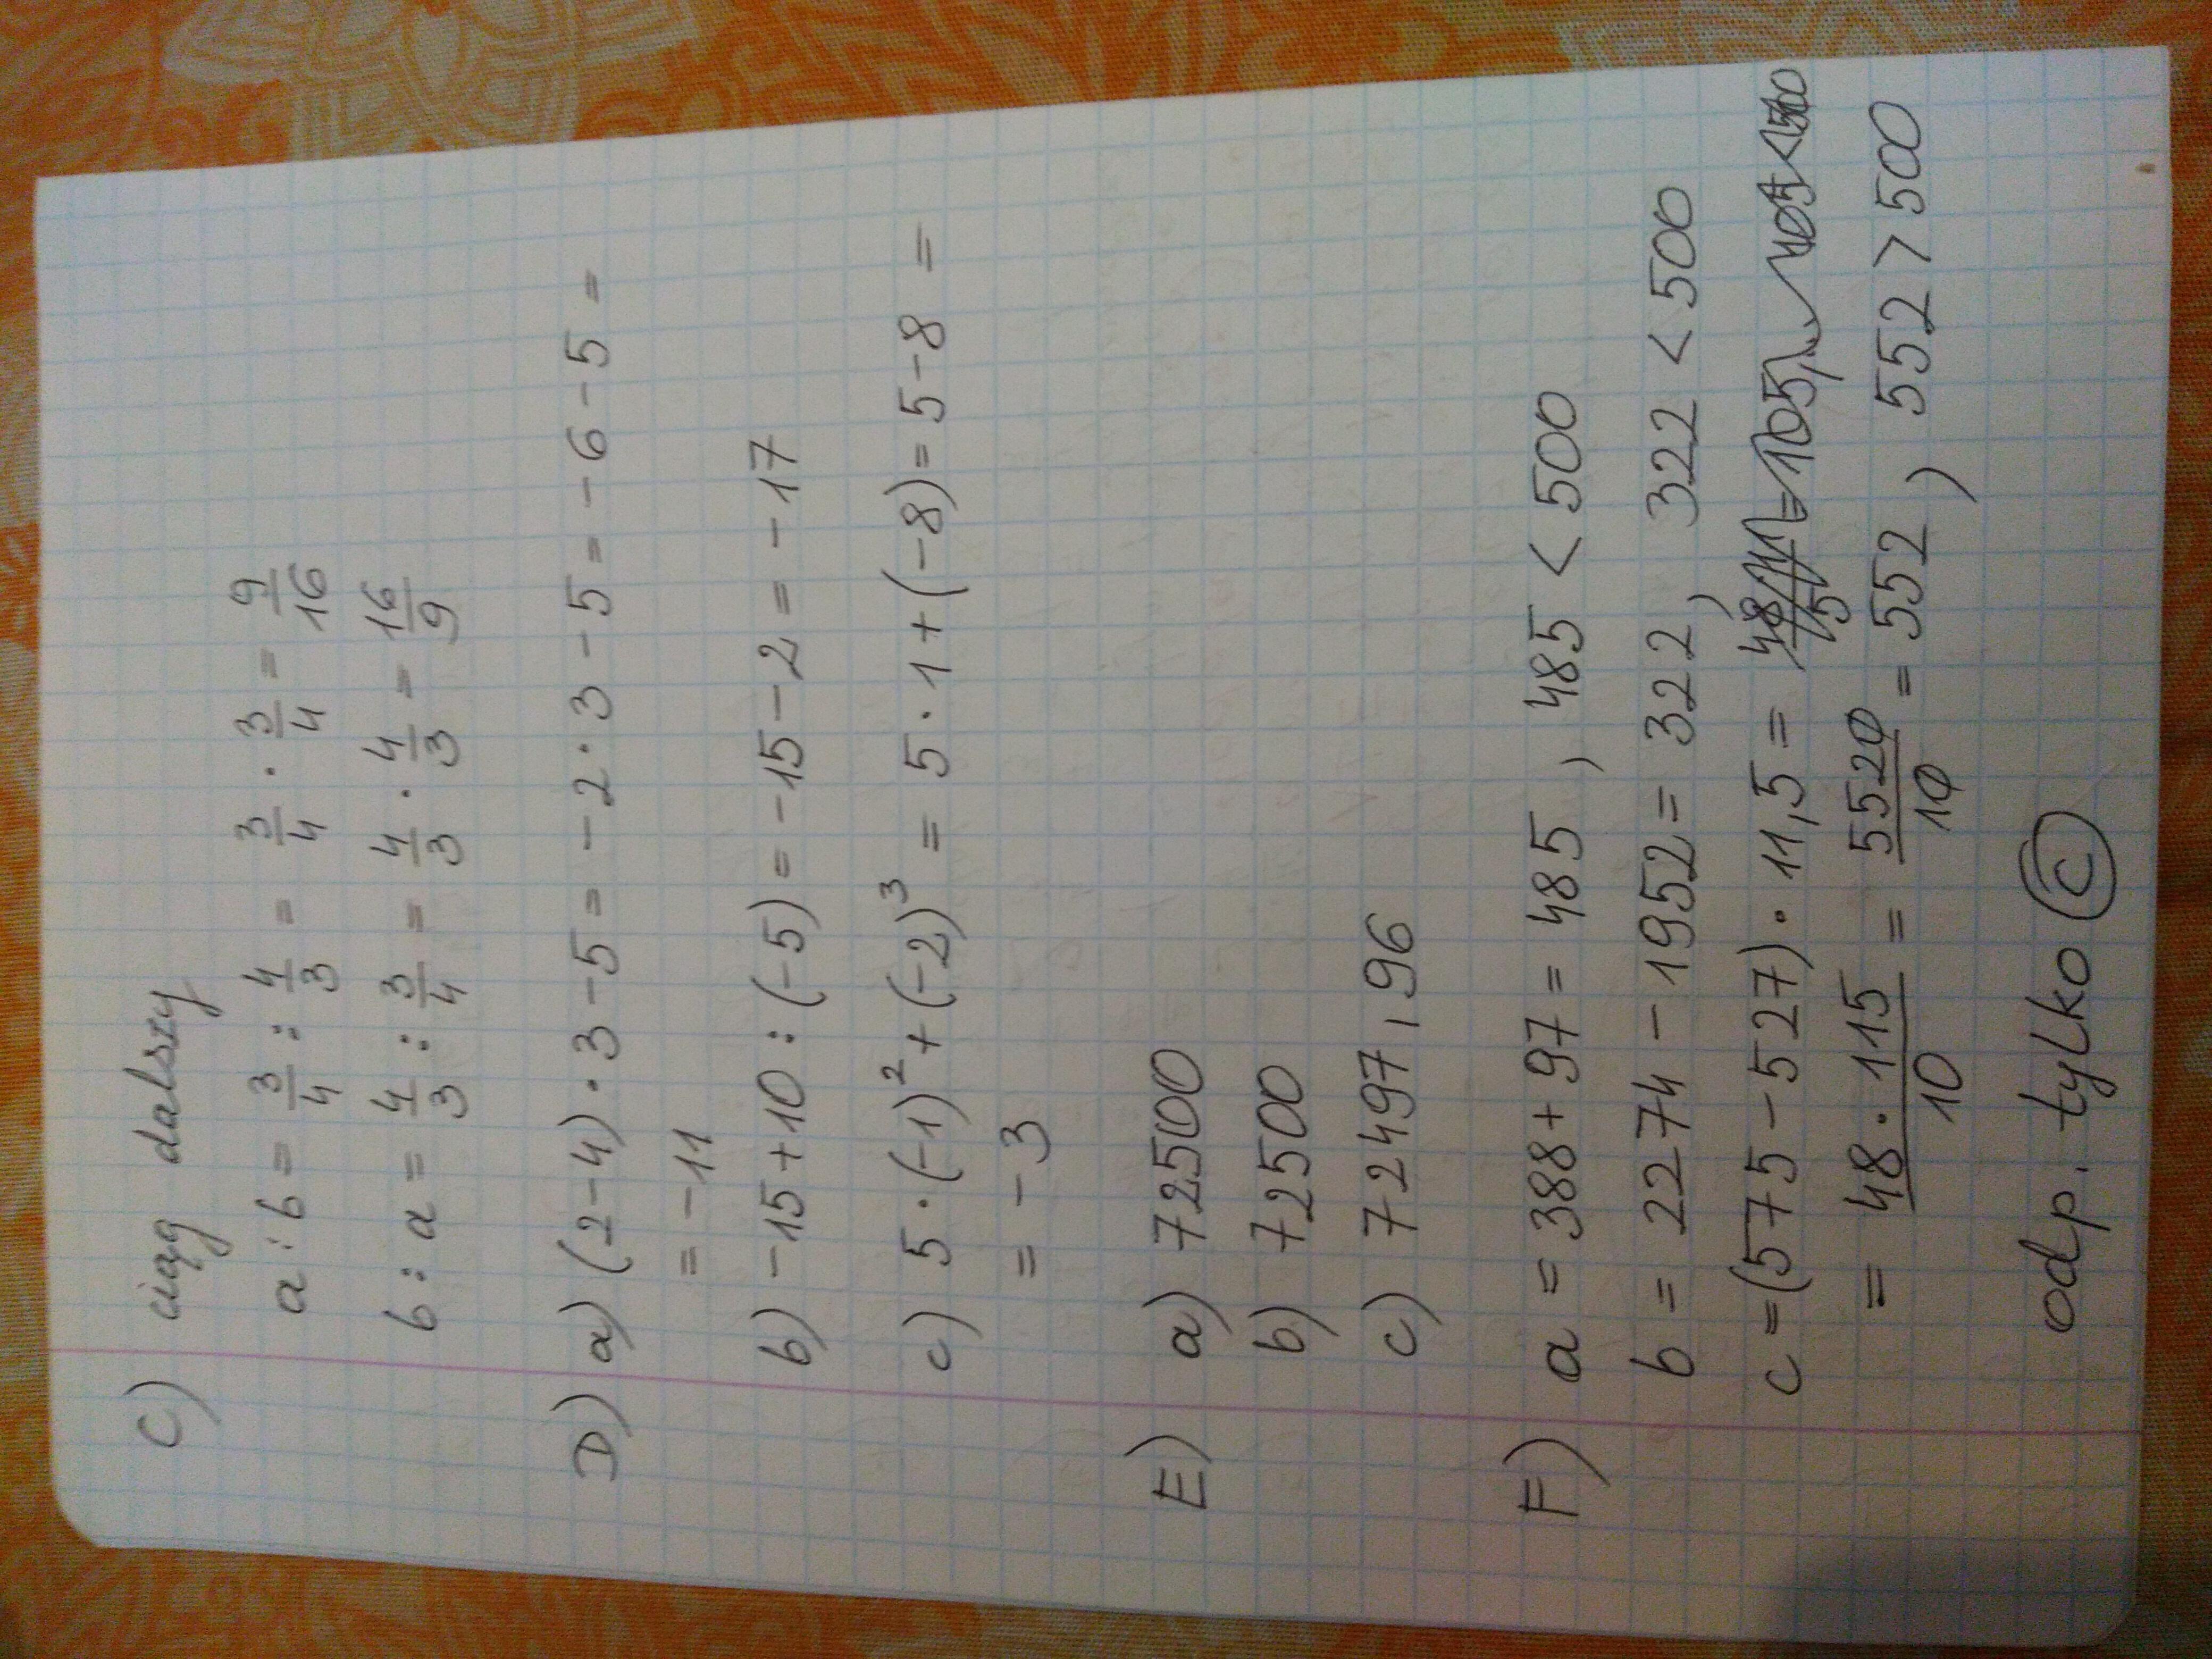 C) ciąg dalszy
a : b = 3/4 : 4/3 = 3/4 · 3/4 = 9/16
b : a = 4/3 : 3/4 = 4/3 · 4/3 = 16/9
D) a) (2-4) · 3 - 5 = - 2 · 3 - 5 = - 6 - 5 =
= - 11
b) -15 + 10 : (-5) = -15 - 2 = - 17
c) 5 · (-1)² + (-2)³ = 5 · 1 + (-8) = 5 - 8 =
= - 3
E) a) 72500
b) 72500
c) 72497,96
F) a = 388 + 97 = 485 , 485 < 500
b = 2274 - 1952 = 322 , 322 < 500
c = (575 - 527) · 11,5 =
= 48 · 115/10 = 5520/10 = 552 , 552 > 500
odp. tylko c